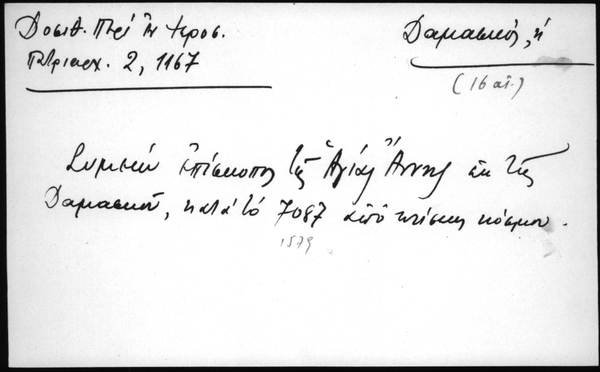 Δοσιθ. Περί ἐν Ἱεροσ.
Πατριαρχ. 2, 1167
Δαμασκός, ἡ
(16 αἰ.)
Συμεών ἐπίσκοπος τῆς Ἁγίας Ἄννης ἐκ τῆς
Δαμασκοῦ, κατά τό 7087 ἀπό κτίσεως κόσμου.
1579